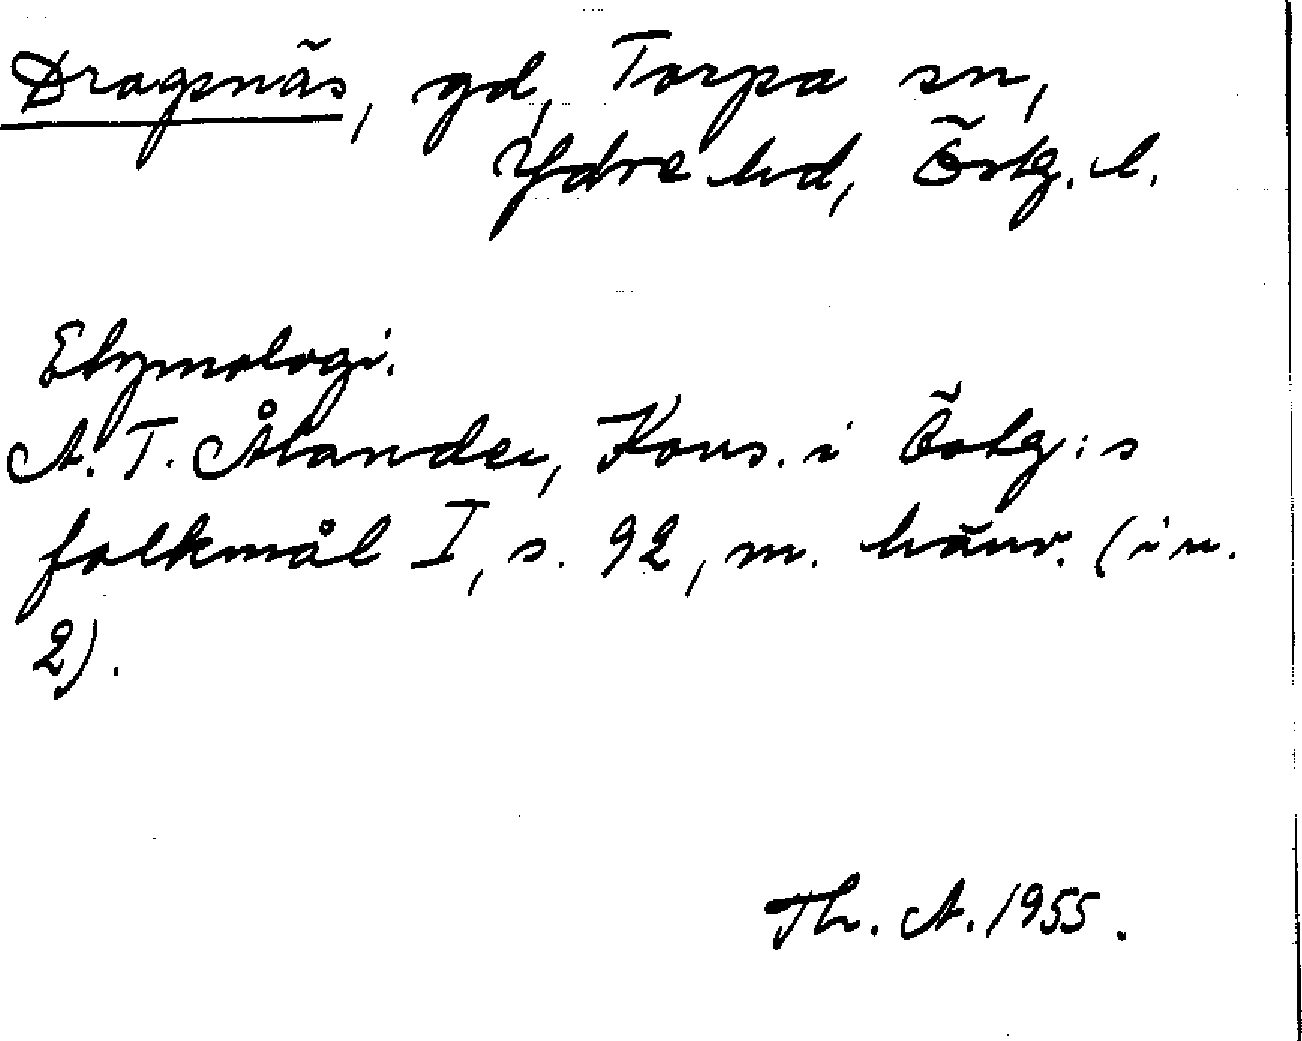 Dragsnäs, gd, Torpa sn,
Ydre hd, Östg. l.
Etymologi.
A. T. Ålander, Kons. i Östg:s
folkmål I, s. 92, m. hänv. (i n.
2).
Th. A. 1955.